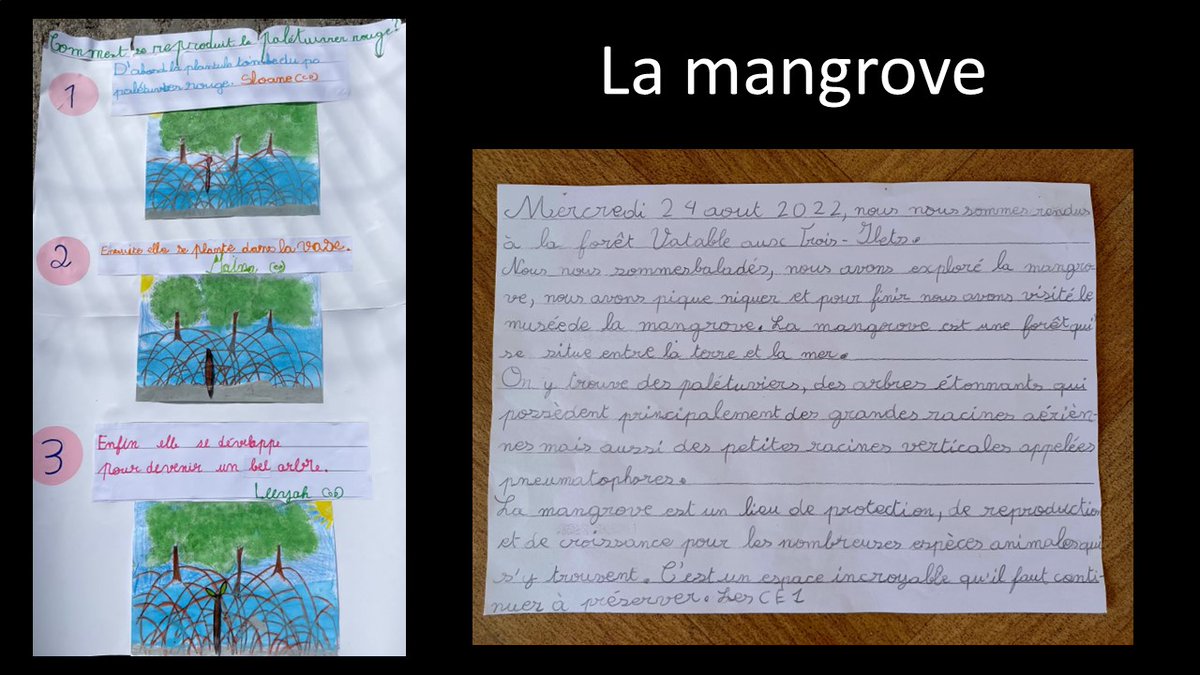 La mangrove
Comment se reproduit le palétuvier rouge?
1
D'abord la plantule tombe du pa
palétuvier rouge. Sloane (CP)
2
Ensuite elle se plante dans la vase.
(CP)
3
Enfin elle se développe
pour devenir un bel arbre.
Leeyah (CP)
Mercredi 24 aout 2022, nous nous sommes rendus
à la forêt Vatable aux Trois-Ilets.
Nous nous sommes baladés, nous avons exploré la mangro-
ve, nous avons pique niquer et pour finir nous avons visité le
musée de la mangrove. La mangrove est une forêt qui
se situe entre la terre et la mer.
On y trouve des palétuviers, des arbres étonnants qui
possèdent principalement des grandes racines aérièn-
nes mais aussi des petites racines verticales appelées
pneumatophores.
La mangrove est un lieu de protection, de reproduction
et de croissance pour les nombreuses espèces animales qui
s'y trouvent. C'est un espace incroyable qu'il faut conti-
nuer à préserver. Les CE1